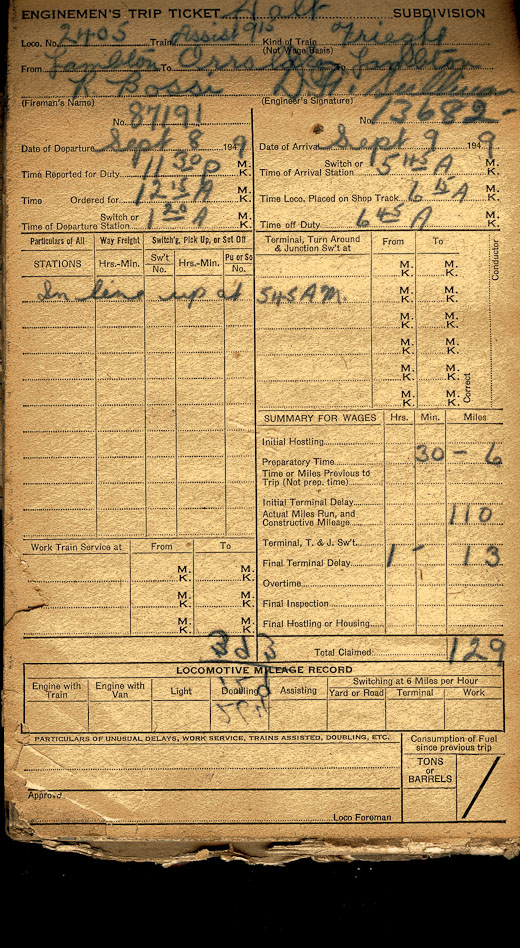 ENGINEMEN'S TRIP TICKET Galt SUBDIVISION
Loco. No. 2405 Train Assist 915 Kind of Train Frieght
(Not Wage Basis)
From Lambton To Lambton
(Fireman's Name) (Engineer's Signature)
No. 87191 No. 13682
Date of Departure Sept 8 1949 Date of Arrival Sept 9 1949
Time Reported for Duty 11 30 P M. K. Switch or Time of Arrival Station 5 45 A M. K.
Time Ordered for 12 15 A M. K. Time Loco. Placed on Shop Track 6 15 A M. K.
Switch or Time of Departure Station 1 20 A M. K. Time off Duty 6 45 A M. K.
Particulars of All Way Freight Switch'g, Pick Up, or Set Off
STATIONS Hrs.-Min. Sw't No. Hrs.-Min. Pu or So No.
In line up at 545 AM.
Terminal, Turn Around & Junction Sw't at From To
M. K. M. K.
M. K. M. K.
M. K. M. K.
M. K. M. K.
M. K. M. K.
M. K. M. K.
Conductor
Correct
SUMMARY FOR WAGES Hrs. Min. Miles
Initial Hostling
Preparatory Time 30 - 6
Time or Miles Previous to Trip (Not prep. time)
Initial Terminal Delay
Actual Miles Run, and Constructive Mileage 110
Terminal, T. & J. Sw't.
Final Terminal Delay 1 - 13
Overtime
Final Inspection
Final Hostling or Housing
Total Claimed 129
Work Train Service at From To
M. K. M. K.
M. K. M. K.
M. K. M. K.
LOCOMOTIVE MILEAGE RECORD
Engine with Train Engine with Van Light Doubling Assisting Switching at 6 Miles per Hour
Yard or Road Terminal Work
PARTICULARS OF UNUSUAL DELAYS, WORK SERVICE, TRAINS ASSISTED, DOUBLING, ETC.
Consumption of Fuel since previous trip
TONS or BARRELS
Approved
Loco Foreman